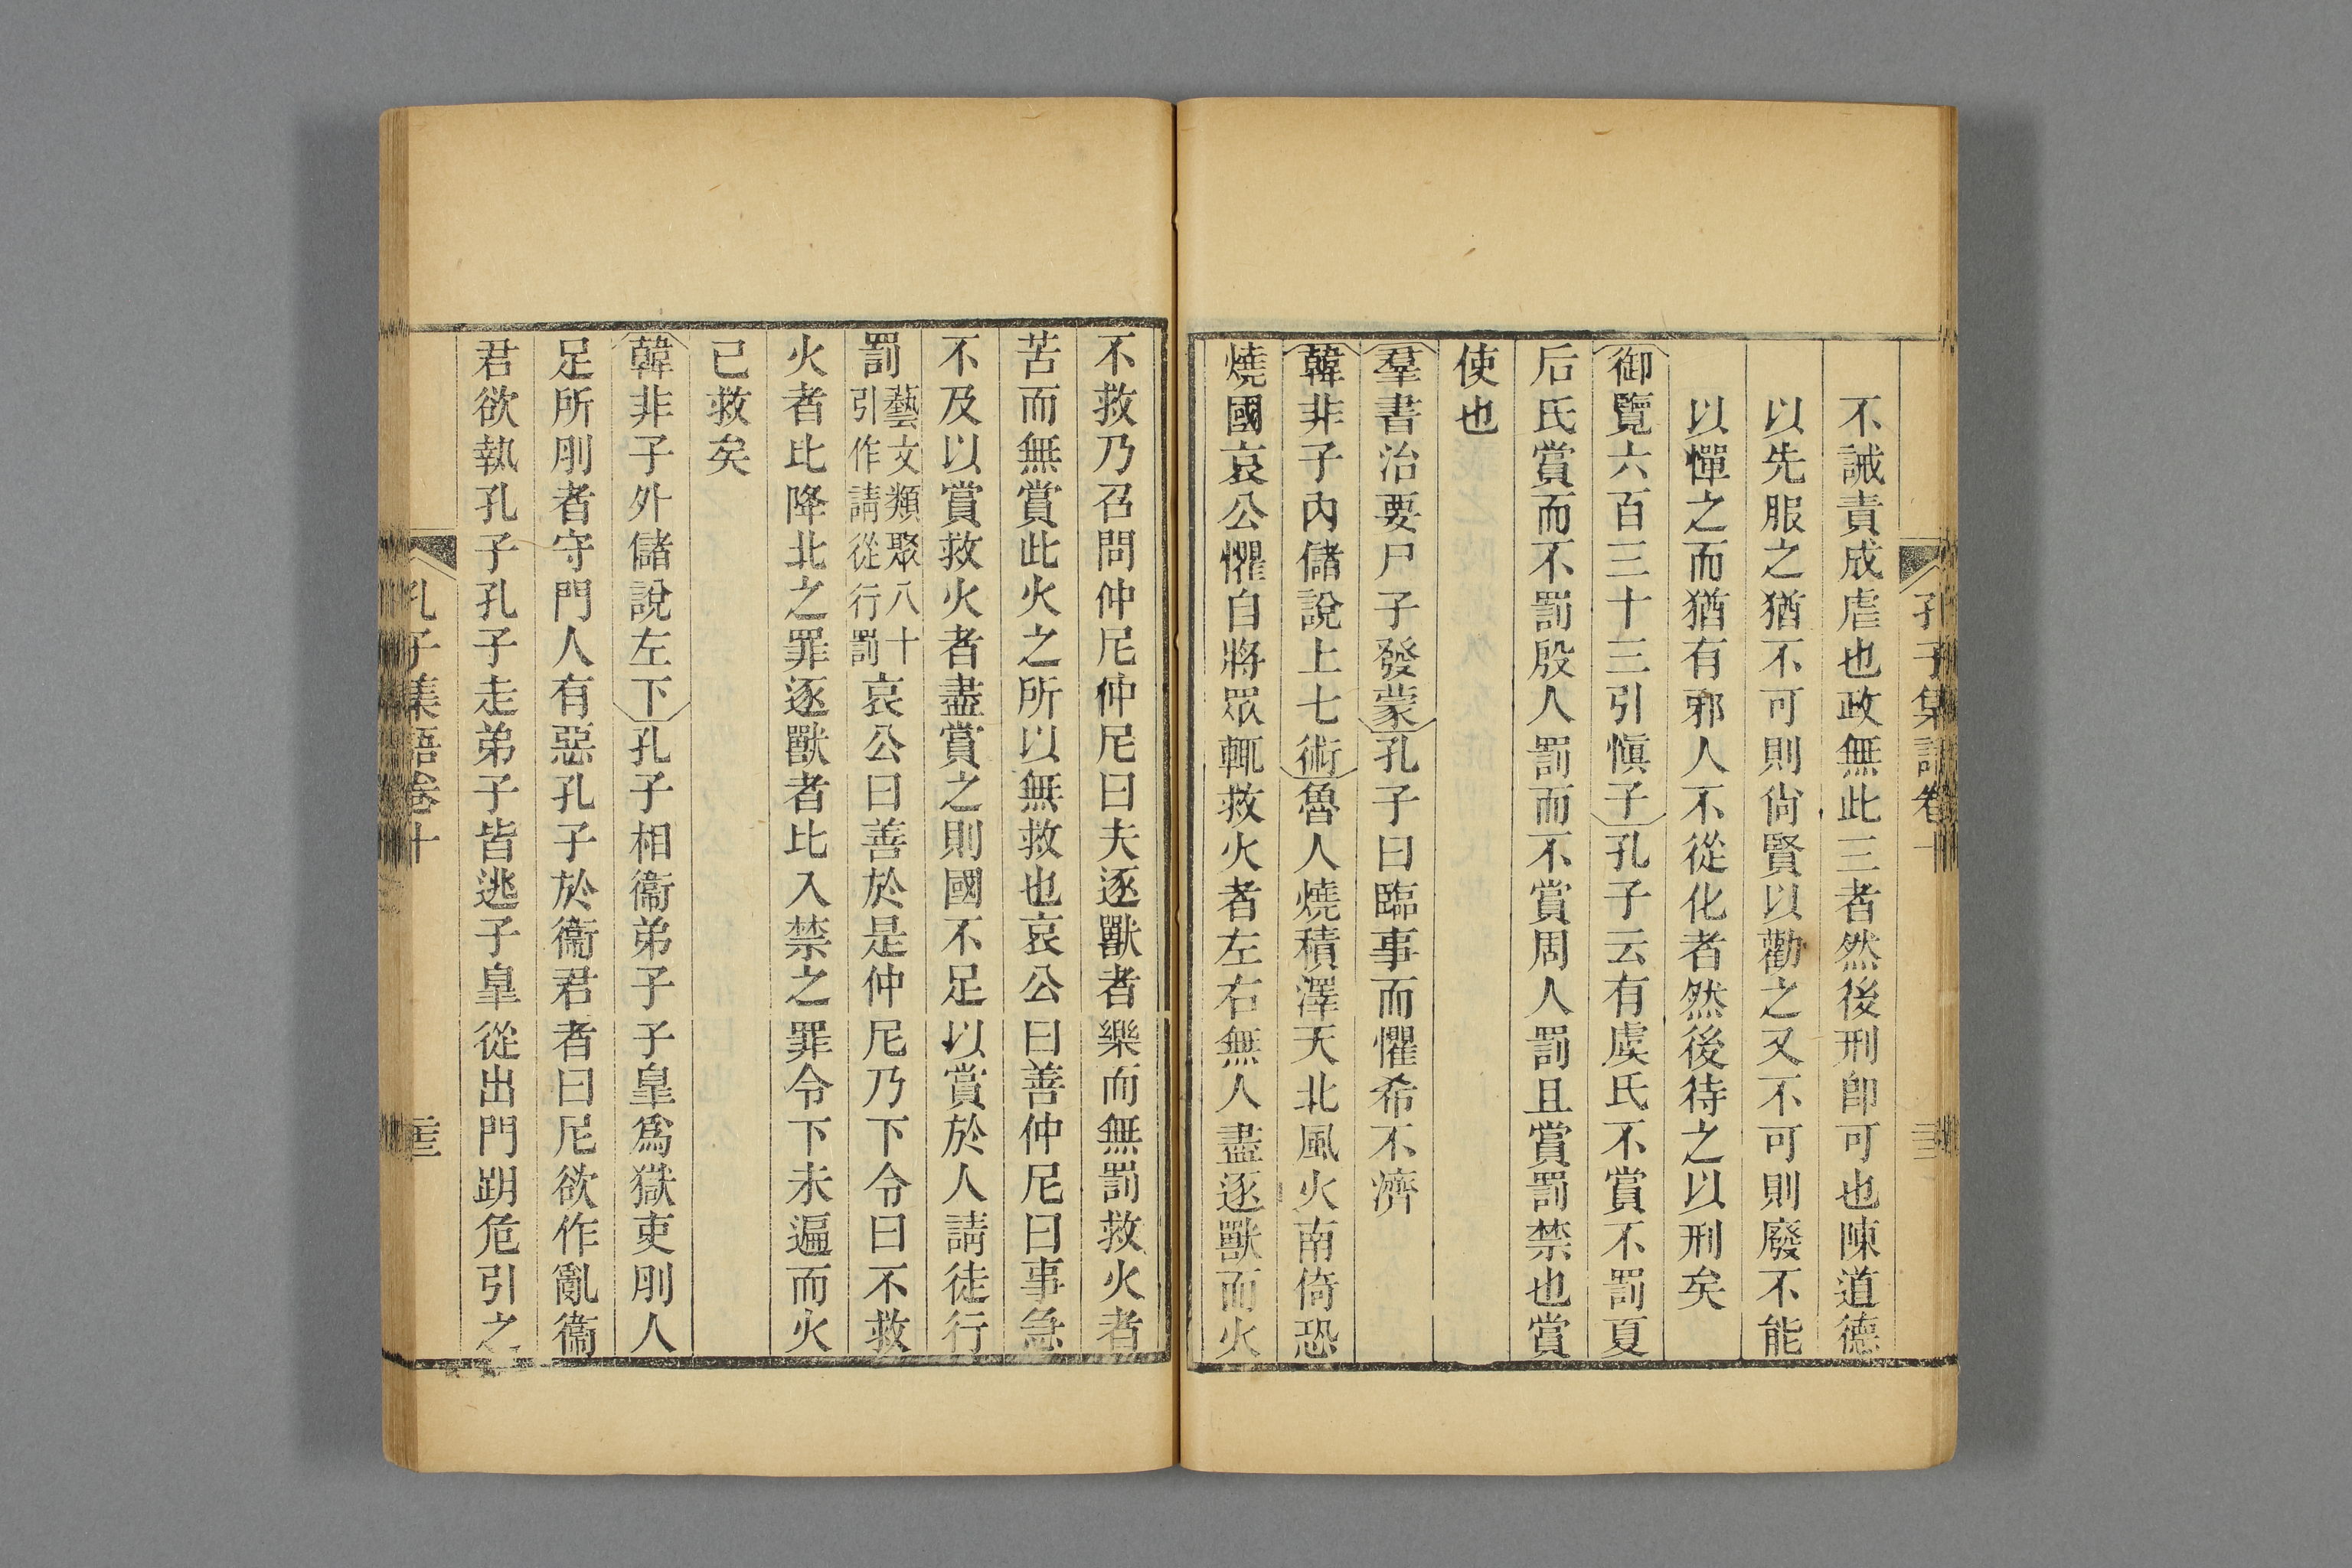 孔子集語卷十
不誡責成虐也政無此三者然後刑卽可也陳道德
以先服之猶不可則尙賢以勸之又不可則廢不能
以憚之而猶有邪人不從化者然後待之以刑矣
御覽六百三十三引愼子孔子云有虞氏不賞不罰夏
后氏賞而不罰殷人罰而不賞周人罰且賞罰禁也賞
使也
羣書治要尸子發蒙孔子曰臨事而懼希不濟
韓非子內儲說上七術魯人燒積澤天北風火南倚恐
燒國哀公懼自將眾輒救火者左右無人盡逐獸而火
不救乃召問仲尼仲尼曰夫逐獸者樂而無罰救火者
苦而無賞此火之所以無救也哀公曰善仲尼曰事急
不及以賞救火者盡賞之則國不足以賞於人請徒行
罰藝文類聚八十引作請從行罰哀公曰善於是仲尼乃下令曰不救
火者比降北之罪逐獸者比入禁之罪令下未遍而火
已救矣
韓非子外儲說左下孔子相衞弟子子皇爲獄吏刖人
足所刖者守門人有惡孔子於衞君者曰尼欲作亂衞
君欲執孔子孔子走弟子皆逃子皐從出門跀危引之
孔子集語卷十